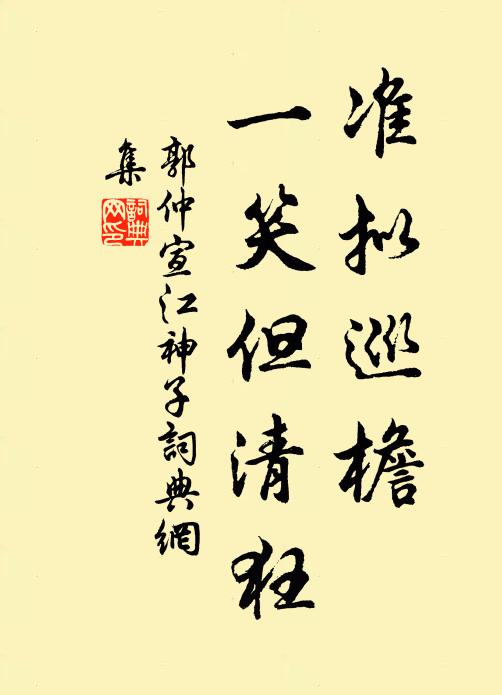 准拟巡檐
一笑但清狂
郭仲宣江神子詞典網
集
詞典
网印